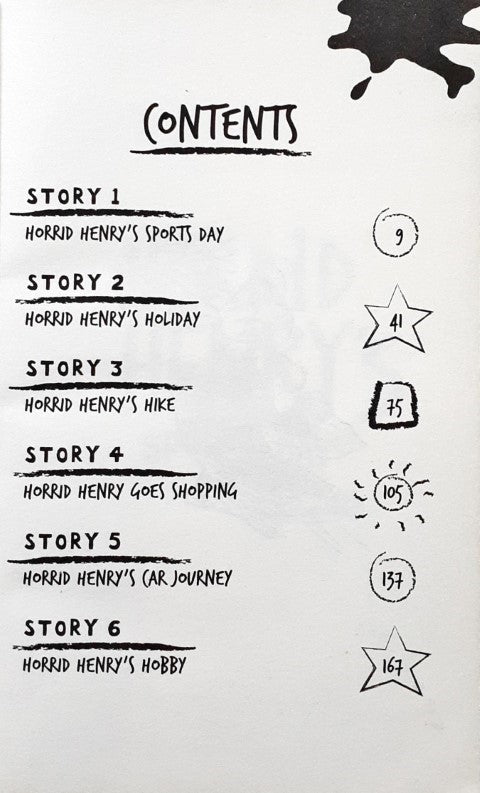 CONTENTS
STORY 1
HORRID HENRY'S SPORTS DAY 9
STORY 2
HORRID HENRY'S HOLIDAY 41
STORY 3
HORRID HENRY'S HIKE 75
STORY 4
HORRID HENRY GOES SHOPPING 105
STORY 5
HORRID HENRY'S CAR JOURNEY 137
STORY 6
HORRID HENRY'S HOBBY 167